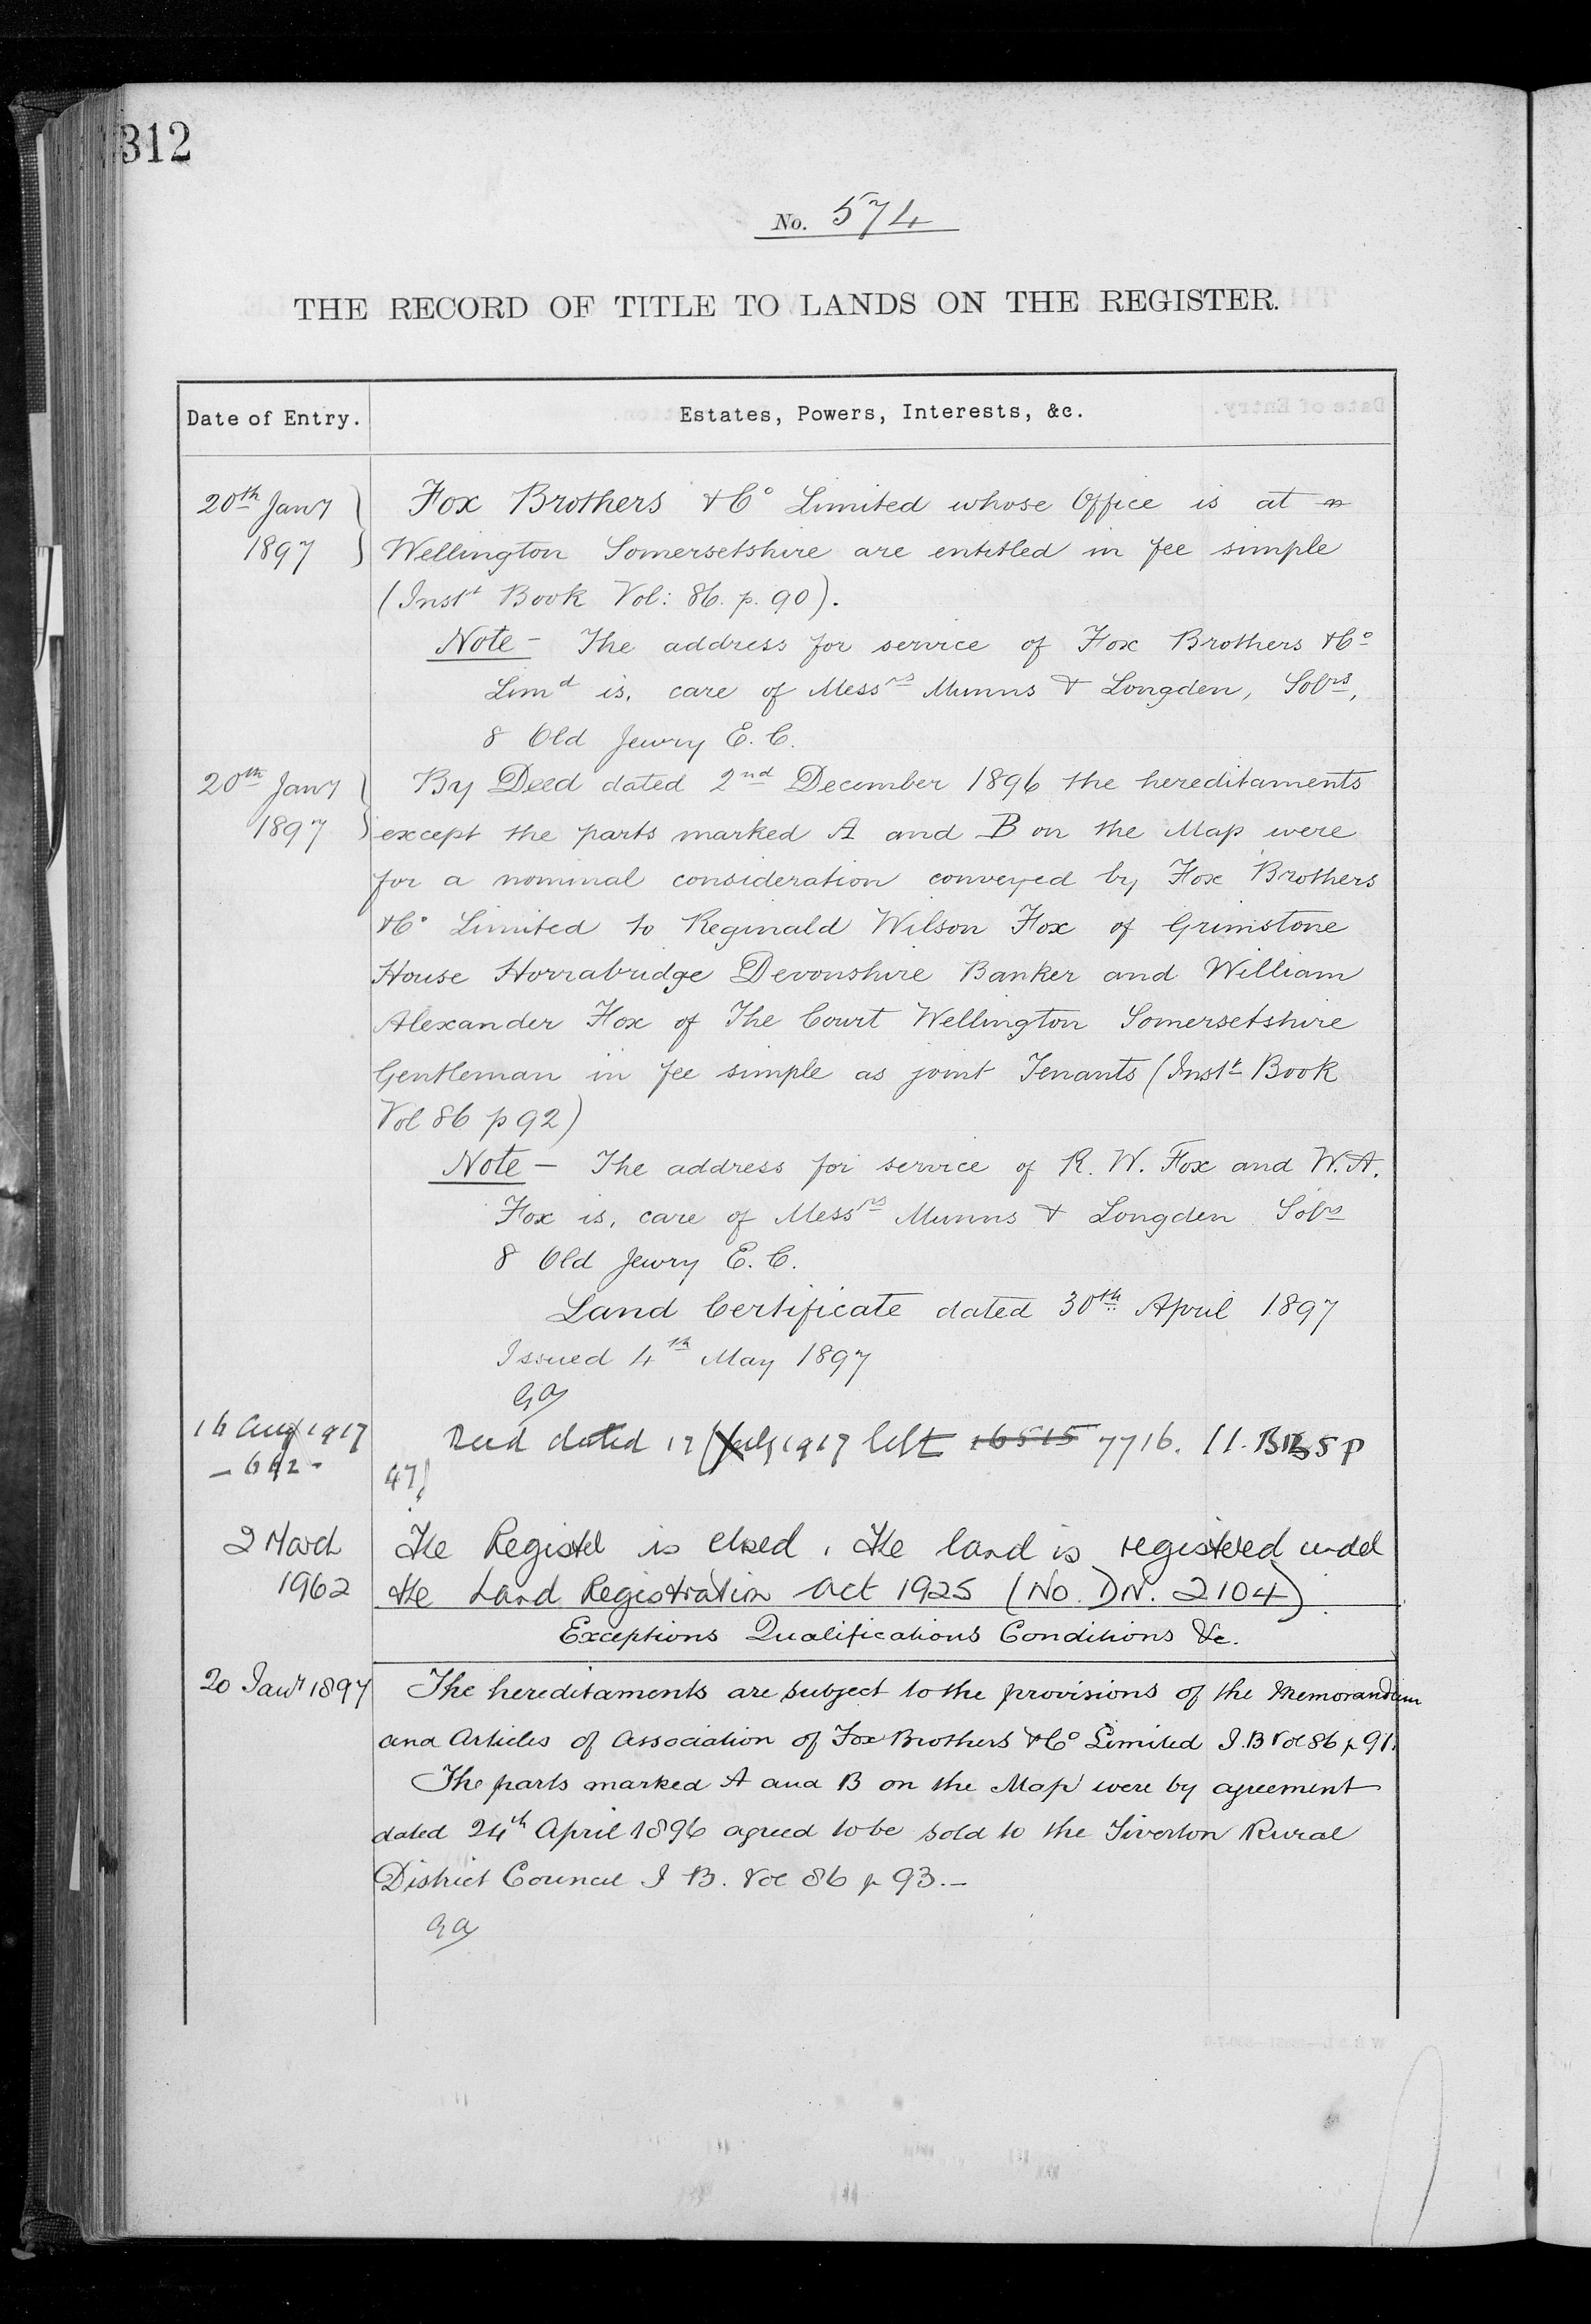 312
No. 574
THE RECORD OF TITLE TO LANDS ON THE REGISTER.
Date of Entry.
Estates, Powers, Interests, &c.
20th Jany
1897
Fox Brothers & Co Limited whose Office is at
Wellington Somersetshire are entitled in fee simple
(Instt Book Vol: 86. p. 90).
Note - The address for service of Fox Brothers & Co
Limd is, care of Messrs Munns & Longden, Solrs,
8 Old Jewry E. C.
20th Jany
1897
By Deed dated 2nd December 1896 the hereditaments
except the parts marked A and B on the Map were
for a nominal consideration conveyed by Fox Brothers
& Co Limited to Reginald Wilson Fox of Grimstone
House Horrabridge Devonshire Banker and William
Alexander Fox of The Court Wellington Somersetshire
Gentleman in fee simple as joint Tenants (Instt Book
Vol 86 p 92)
Note - The address for service of R. W. Fox and W. A.
Fox is, care of Messrs Munns & Longden Solrs
8 Old Jewry E. C.
Land Certificate dated 30th April 1897
Issued 4th May 1897
16 Aug 1917
Deed dated 17 July 1917 left 16515 7716.
47
2 March
1962
The Register is closed. The land is registered under
the Land Registration Act 1925 (No. DN. 2104)
Exceptions Qualifications Conditions &c.
20 Jany 1897
The hereditaments are subject to the provisions of the Memorandum
and Articles of Association of Fox Brothers & Co Limited I.B Vol 86 p 91.
The parts marked A and B on the Map were by agreement
dated 24th April 1896 agreed to be sold to the Tiverton Rural
District Council I B. Vol 86 p 93.-